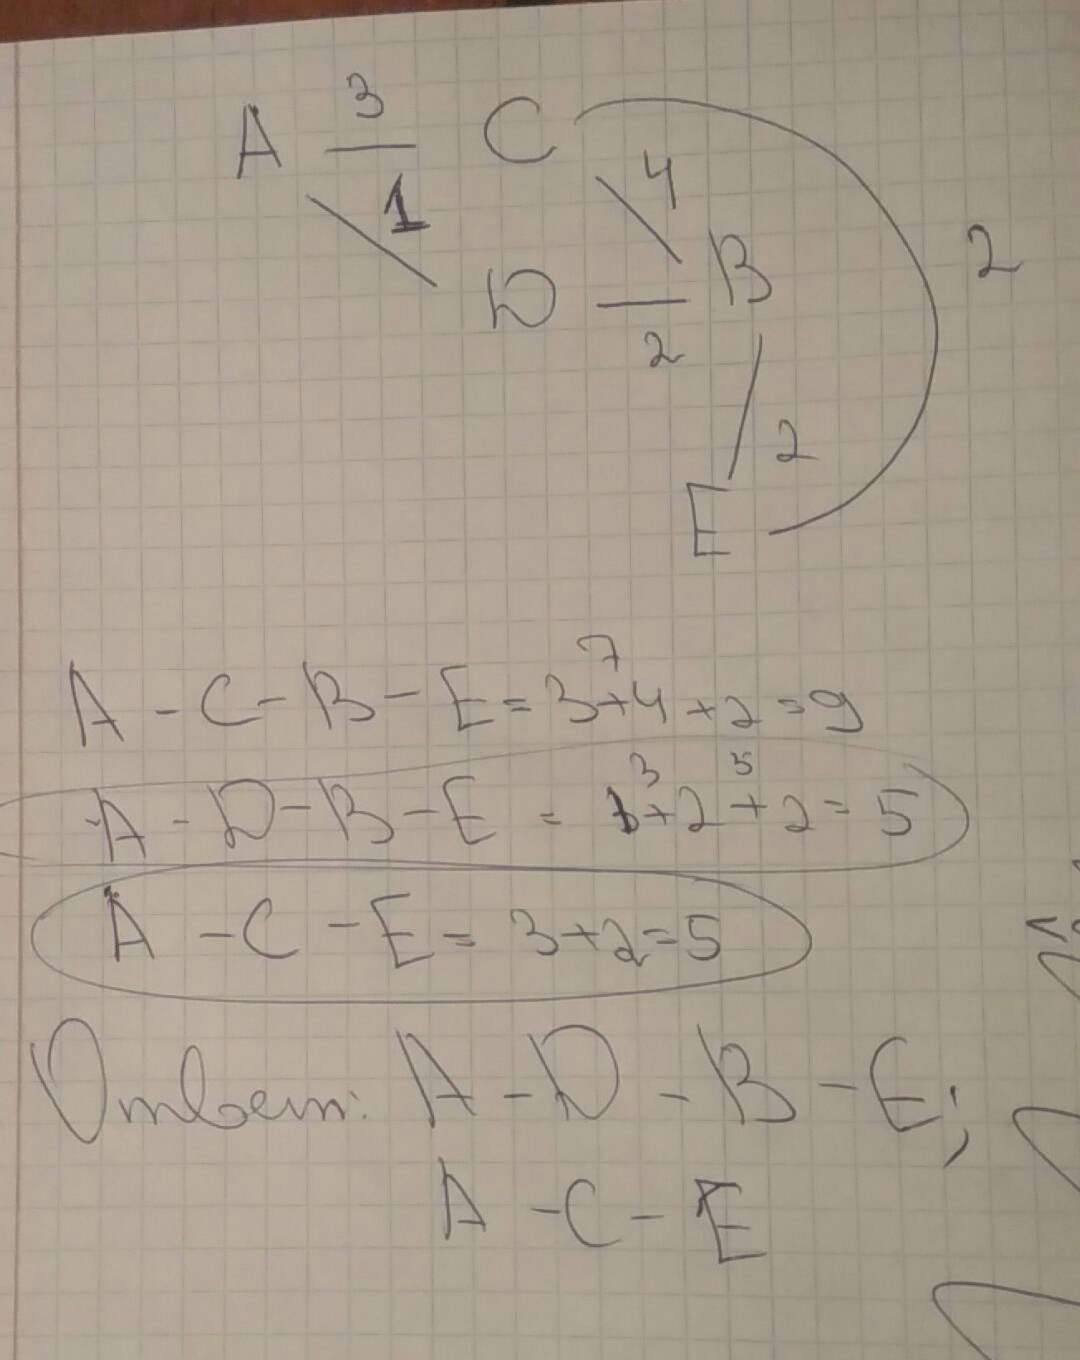 3
A — C
1 4
D — B 2
2
2
E
7
A - C - B - E = 3+4+2=9
3 5
A - D - B - E = 1+2+2=5
A - C - E = 3+2=5
Ответ: A - D - B - E;
A - C - E